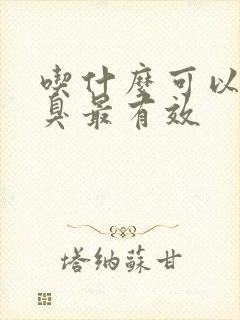 喫什麼可以
臭最有效
塔納蘇甘